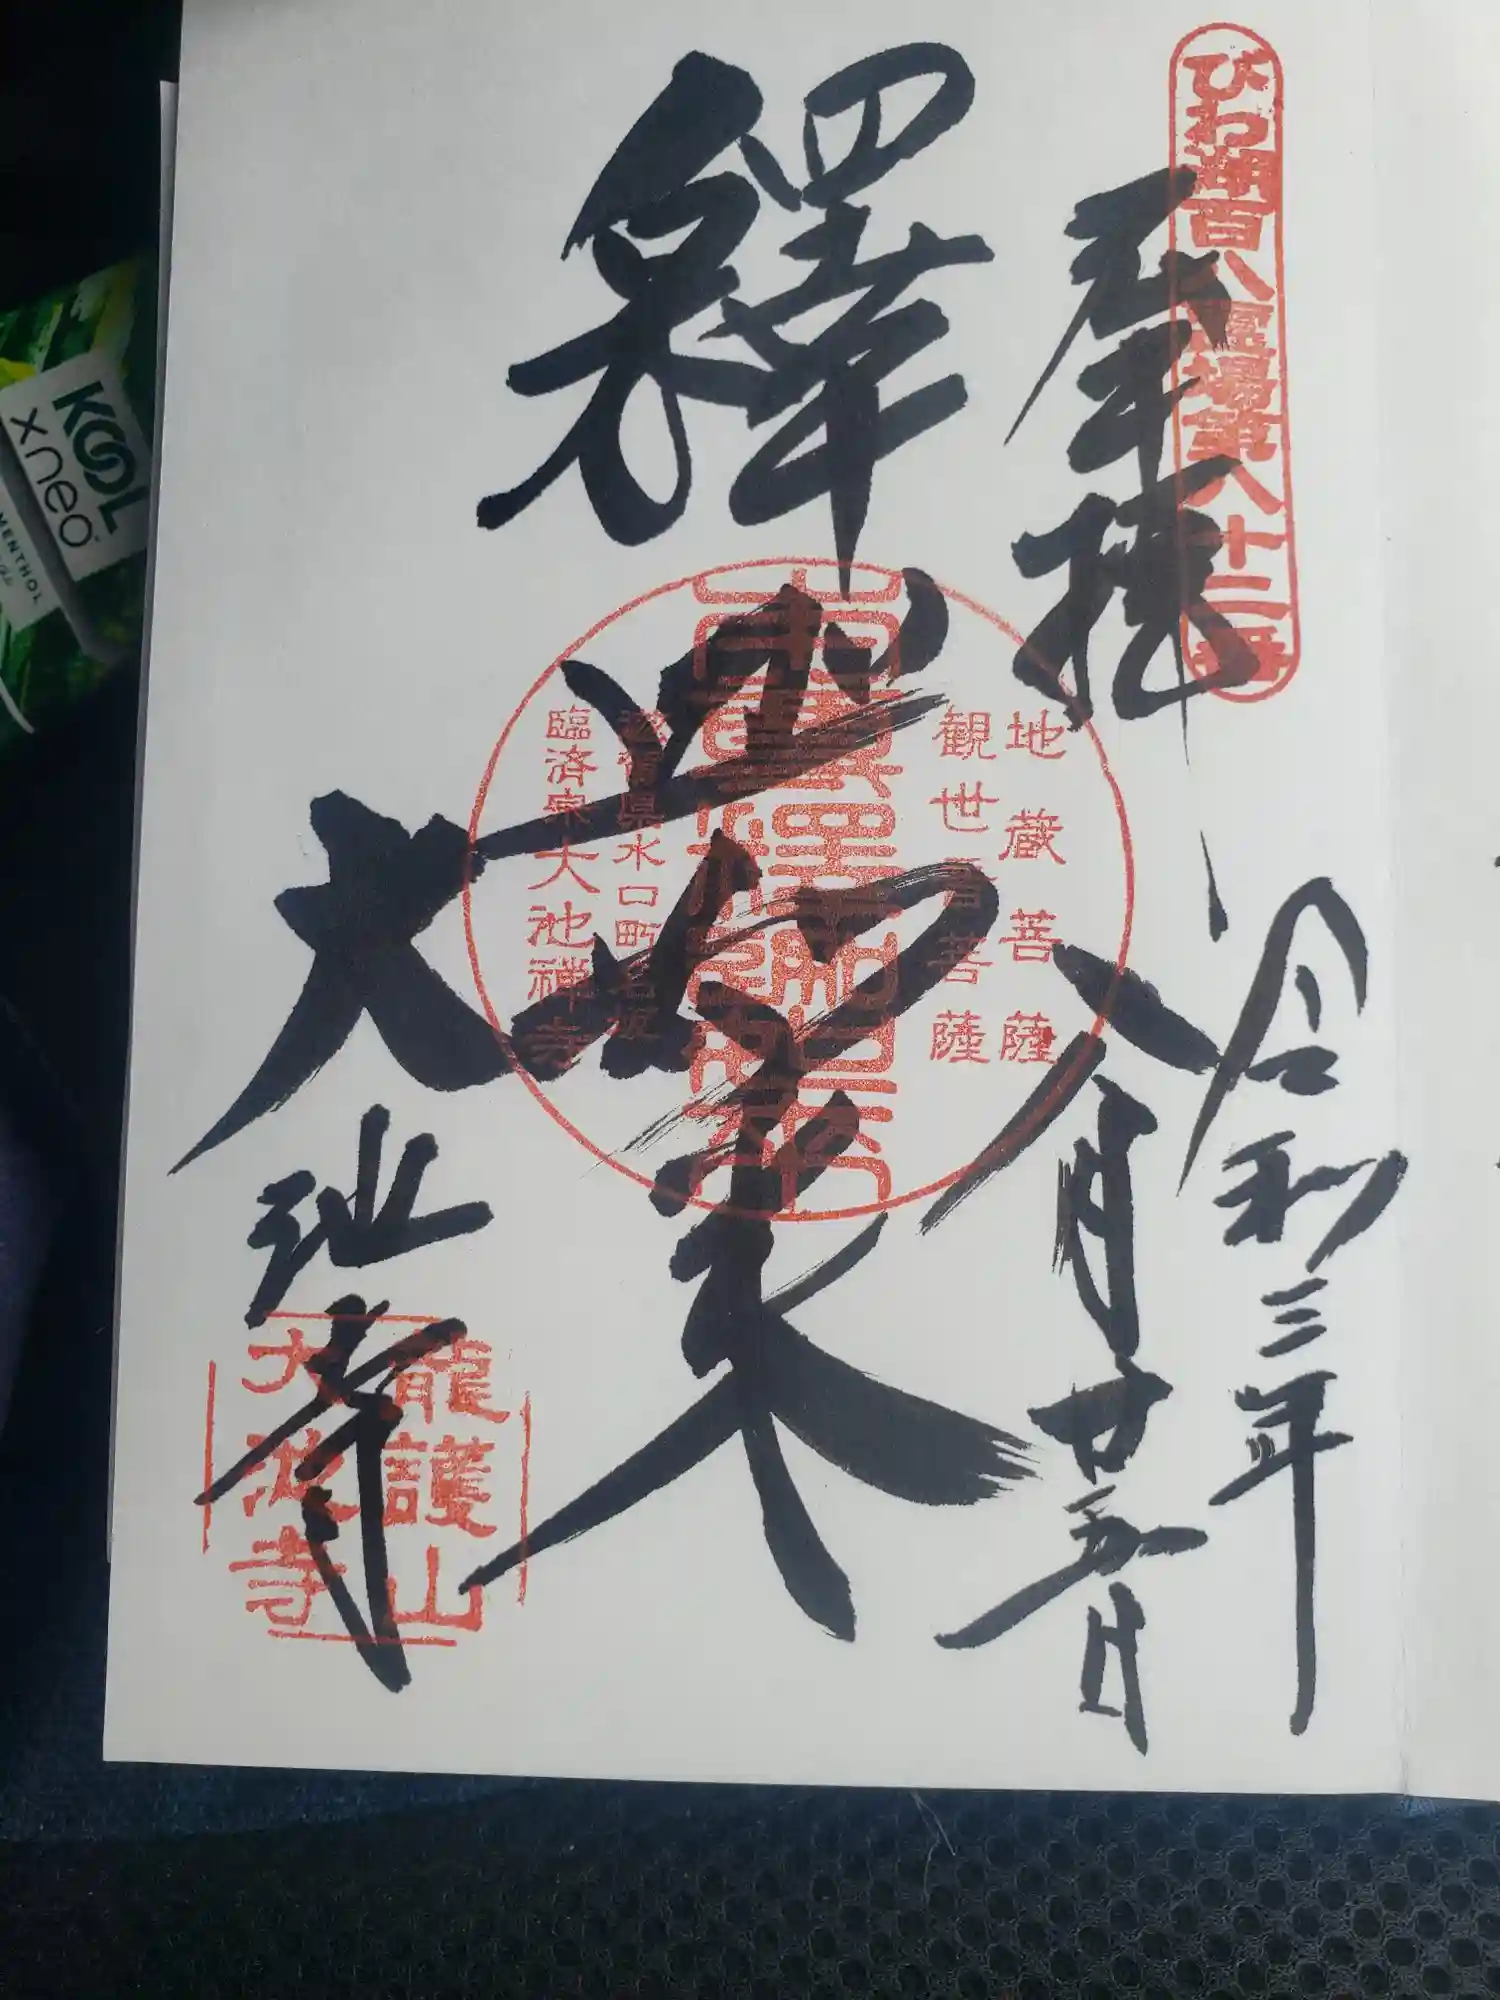 びわ湖百八霊場第八十二番
奉拝
令和三年
八月廿五日
釋迦如来
地蔵菩薩
観世音菩薩
滋賀県水口町名坂
臨済宗大池禅寺
大池寺
龍護山
大池寺
KOOL
x neo
MENTHOL